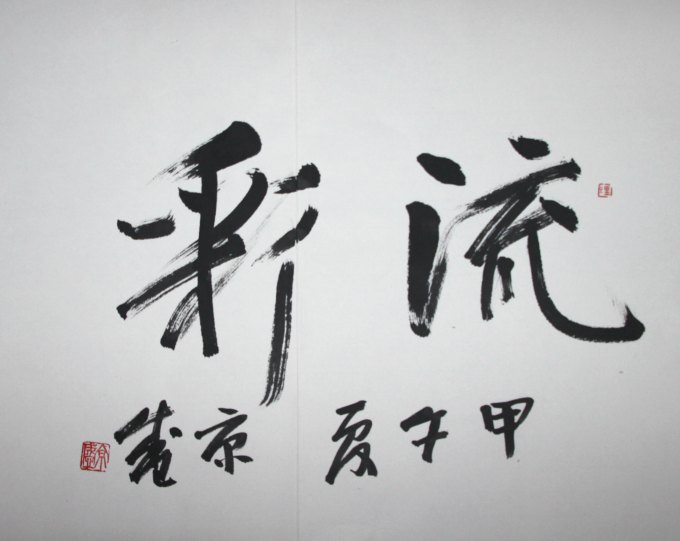 流彩
甲午夏 京